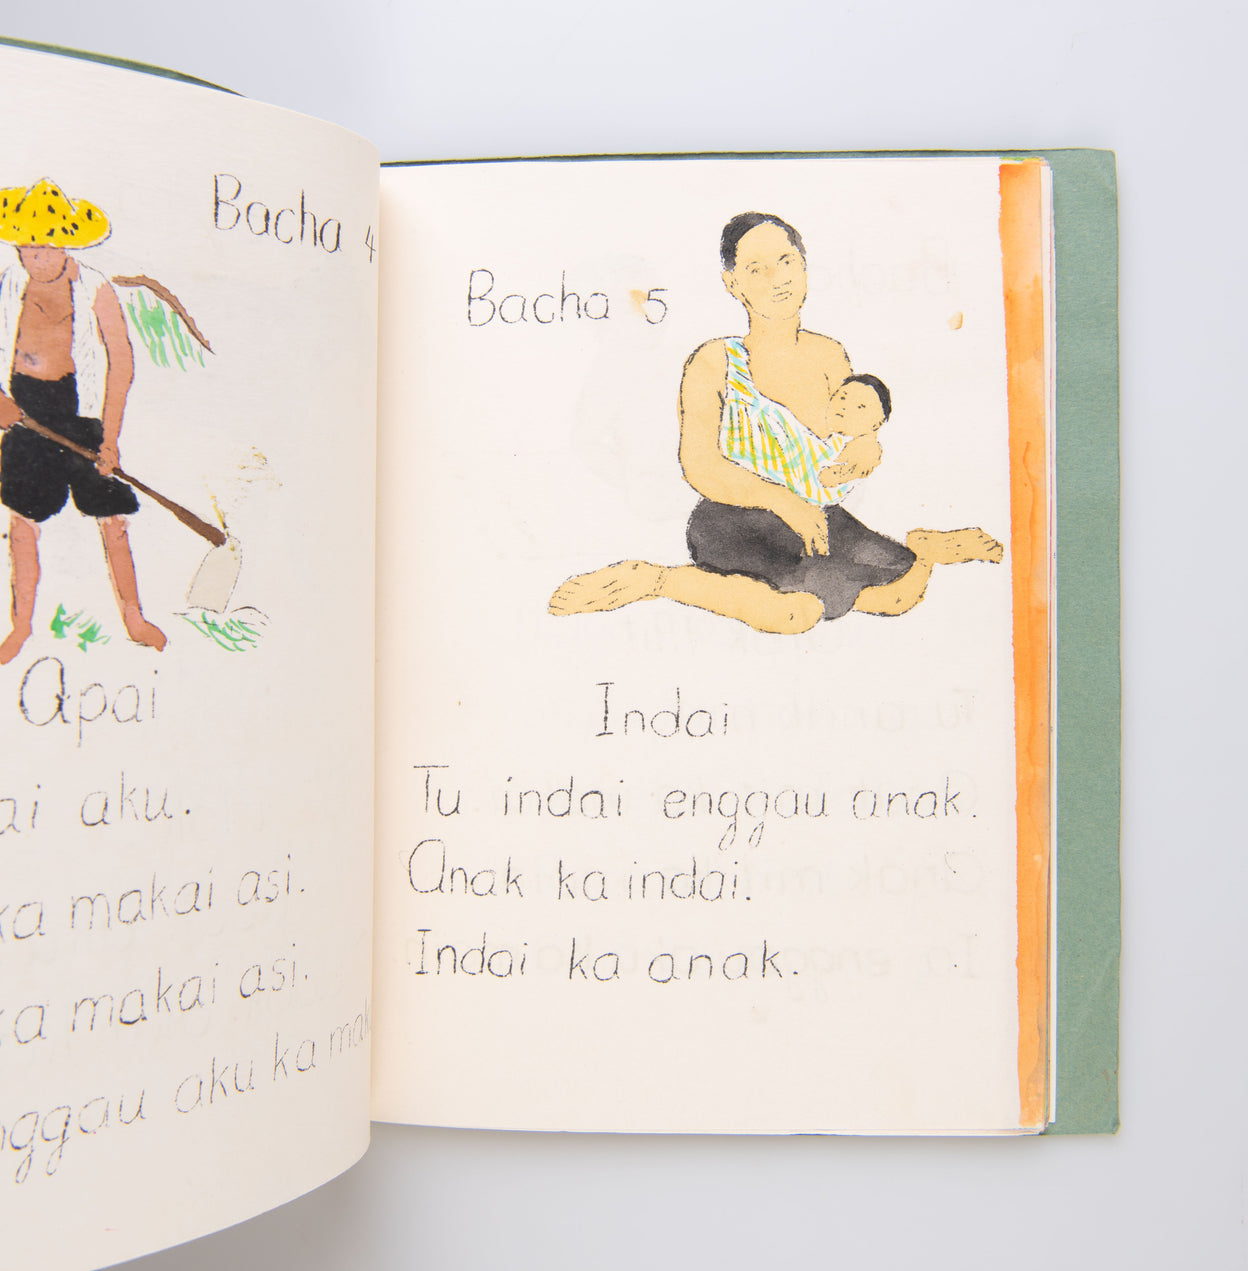 Bacha 4
Apai
aku.
ka makai asi.
ka makai asi.
aku ka
Bacha 5
Indai
Tu indai enggau anak.
Anak ka indai.
Indai ka anak.